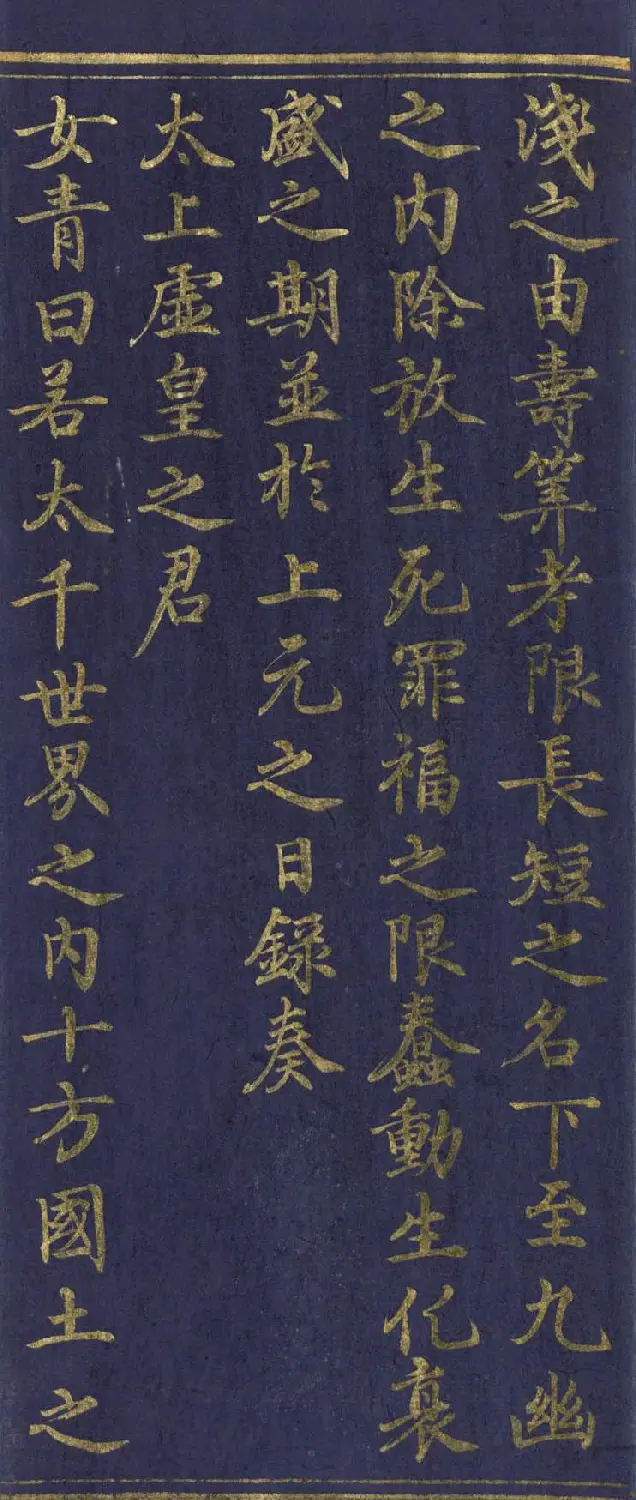 淺之由壽筭考限長短之名下至九幽
之内除放生死罪福之限蠢動生化衰
盛之期並於上元之日錄奏
太上虛皇之君
女青曰若太千世界之内十方國土之